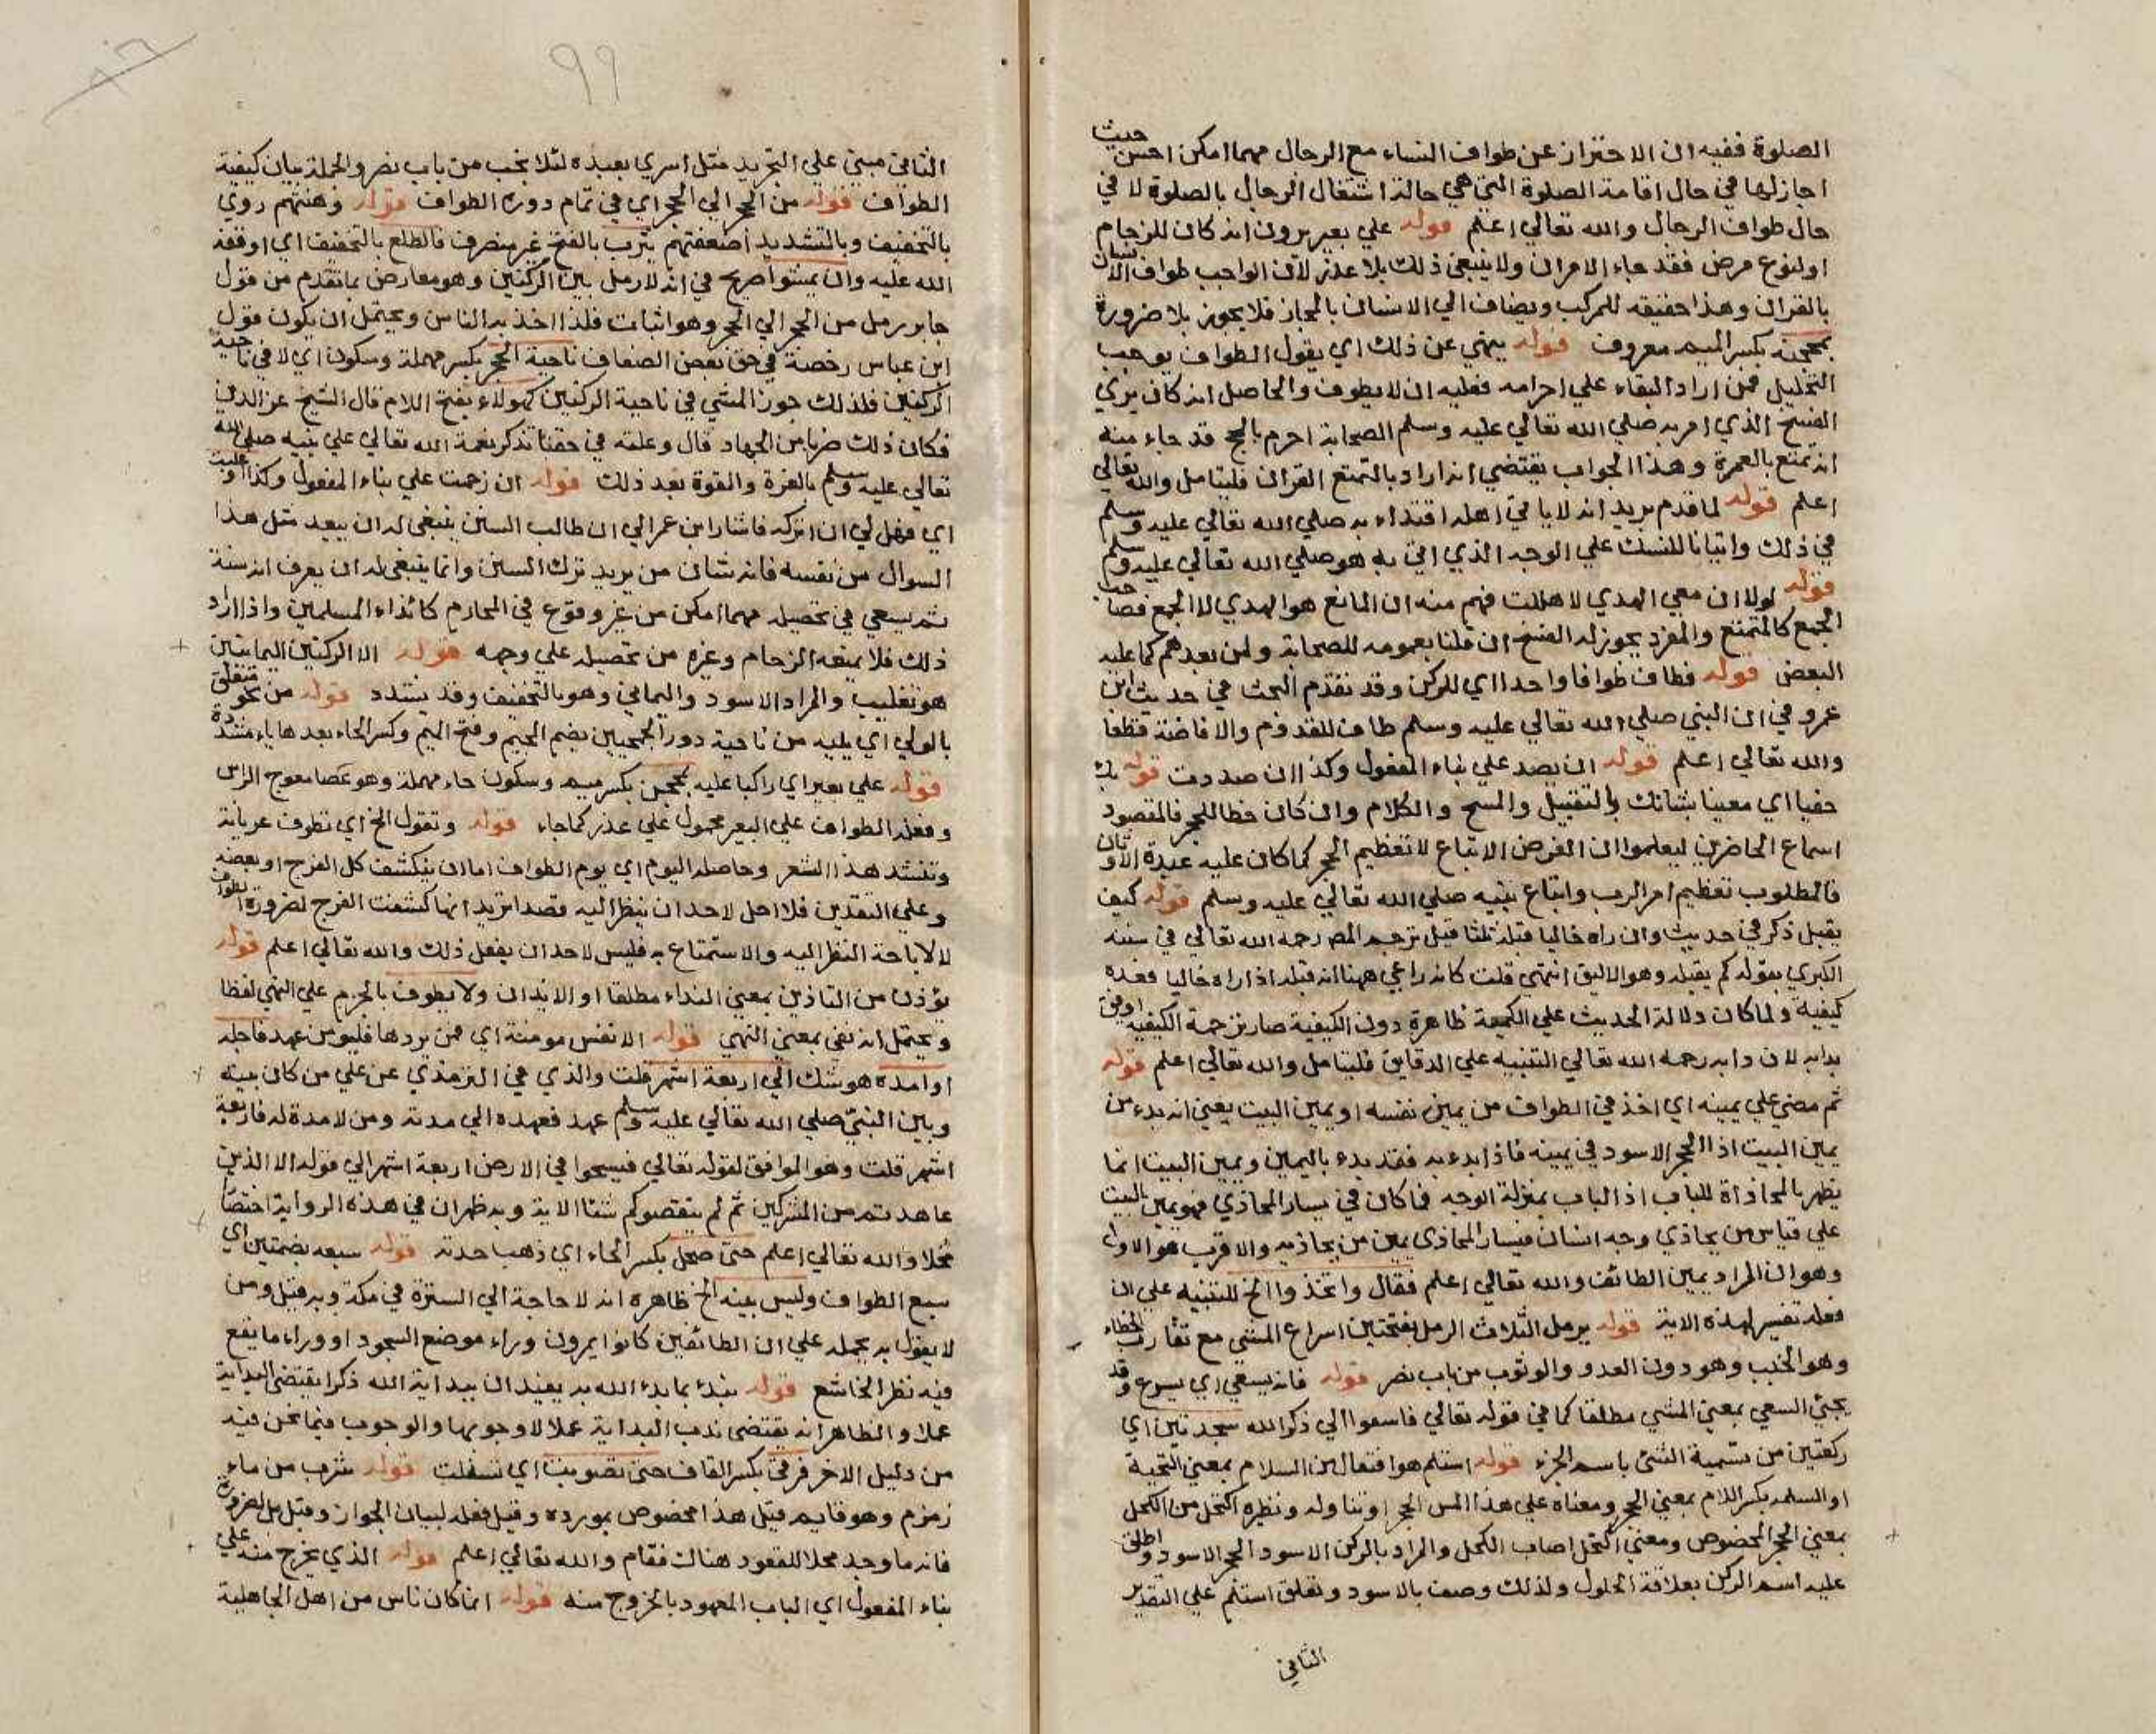 الصلوة ففيه ان الاحتراز عن طواف النساء مع الرجال مهما امكن احسن حيث
اجاز لها في حال اقامة الصلوة التي هي حالة اشتغال الرجال بالصلوة لا في
حال طواف الرجال والله تعالي اعلم قوله علي بعير يرون انه كان للزحام
او لنوع مرض فقد جاء الامران ولا ينبغي ذلك بلا عذر لان الواجب طواف الانسان
بالقران وهذا حقيقه للمركب ويضاف الي الانسان بالمجاز فلا يجوز بلا ضرورة
بمحجنه بكسر الميم معروف قوله ينهي عن ذلك اي يقول الطواف يوجب
التحليل فمن اراد البقاء علي احرامه فعليه ان لا يطوف والحاصل انه كان يري
الفسخ الذي امر به صلي الله تعالي عليه وسلم الصحابة احرم بالحج قد جاء منه
انه تمتع بالعمرة وهذا الجواب يقتضي انه اراد بالتمتع القران فليتامل والله تعالي
اعلم قوله لما قدم يريد انه لا ياتي اهله اقتداء به صلي الله تعالي عليه وسلم
في ذلك واتيانا للنسك علي الوجه الذي اتي به هو صلي الله تعالي عليه وسلم
قوله لولا ان معي الهدي لاهللت فهم منه ان المانع هو الهدي لا الجمع فصاحب
الجمع كالمتمتع والمفرد يجوز له الفسخ ان قلنا بعمومه للصحابة ولمن بعدهم كما عليه
البعض قوله فطاف طوافا واحدا اي للركن وقد تقدم البحث في حديث ابن
عمرو في ان النبي صلي الله تعالي عليه وسلم طاف للقدوم والافاضة قطعا
والله تعالي اعلم قوله ان يصد علي بناء المفعول وكذا ان صددت قوله بك
حفيا اي معينا بشانك والتقبيل والمسح والكلام وان كان خطا للحجر فالمقصود
اسماع الحاضرين ليعلموا ان الغرض الاتباع لا تعظيم الحجر كما كان عليه عبدة الاوثان
فالمطلوب تعظيم امر الرب واتباع نبيه صلي الله تعالي عليه وسلم قوله كيف
يقبل ذكر في حديث وان راه خاليا قبله ثلثا قيل ترجم المص رحمه الله تعالي في سننه
الكبري بقوله كم يقبله وهو الاليق انتهي قلت كانه راعي ههنا انه قبله اذا راه خاليا فعده
كيفية ولما كان دلالة الحديث علي الكمية ظاهرة دون الكيفية صار ترجمة الكيفية اوفق
بدابه لان دابه رحمه الله تعالي التنبيه علي الدقايق فليتامل والله تعالي اعلم قوله
ثم مضي علي يمينه اي اخذ في الطواف من يمين نفسه او يمين البيت يعني انه بدء من
يمين البيت اذ الحجر الاسود في يمينه فاذا بدء به فقد بدء باليمين ويمين البيت انما
يظهر بالمحاذاة للباب اذ الباب بمنزلة الوجه فما كان في يسار المحاذي فهو يمين البيت
علي قياس من يحاذي وجه انسان فيسار المحاذي يمين من يحاذيه والاقرب هو الاول
وهو ان المراد يمين الطائف والله تعالي اعلم فقال واتخذوا الخ للتنبيه علي ان
فعله تفسير لهذه الاية قوله يرمل الثلاث الرمل بفتحتين اسراع المشي مع تقارب الخطاء
وهو الخبب وهو دون العدو والوثوب من باب نصر قوله فانه يسعي اي يسرع وقد
يجئ السعي بمعني المشي مطلقا كما في قوله تعالي فاسعوا الي ذكر الله سجدتين اي
ركعتين من تسمية الشئ باسم الجزء قوله استلم هو افتعال من السلام بمعني التحية
او السلمة بكسر اللام بمعني الحجر ومعناه علي هذا المس الحجر او تناوله ونظيره اكتحل من الكحل
بمعني الحجر المخصوص ومعني اكتحل اصاب الكحل والمراد بالركن الاسود الحجر الاسود واطلق
عليه اسم الركن بعلاقة الحلول ولذلك وصف بالاسود وتعلق استلم علي التقدير
الثاني
٩٩
الثاني مبني علي التجريد مثل اسري بعبده لئلا يخب من باب نصر والجملة بيان كيفية
الطواف قوله من الحجر الي الحجر اي في تمام دورة الطواف قوله وهنتهم روي
بالتخفيف وبالتشديد اضعفتهم يثرب بالفتح غير منصرف فاطلع بالتخفيف اي اوقفه
الله عليه وان يمشوا صريح في انه لا رمل بين الركنين وهو معارض بما تقدم من قول
جابر رمل من الحجر الي الحجر وهو اثبات فلذا اخذ به الناس ويحتمل ان يكون قول
ابن عباس رخصة في حق بعض الضعاف ناحية الحجر بكسر مهملة وسكون اي لا في ناحية
الركنين فلذلك جوز المشي في ناحية الركنين كهولاء بفتح اللام قال الشيخ عز الدين
فكان ذلك ضربا من الجهاد قال وعلته في حقنا تذكر نعمة الله تعالي علي نبيه صلي الله
تعالي عليه وسلم بالعزة والقوة بعد ذلك قوله ان زحمت علي بناء المفعول وكذا او غلبت
اي فهل لي ان اتركه فاشار ابن عمر الي ان طالب السنن ينبغي له ان يبعد مثل هذا
السوال من نفسه فانه شان من يريد ترك السنن وانما ينبغي له ان يعرف انه سنة
ثم يسعي في تحصيله مهما امكن من غير وقوع في المحارم كايذاء المسلمين واذا اراد
ذلك فلا يمنعه الزحام وغيره من تحصيله علي وجهه قوله الا الركنين اليمانيين
هو تغليب والمراد الاسود واليماني وهو بالتخفيف وقد يشدد قوله من نحو متعلق
بالولي اي يليه من ناحية دور الجمحيين بضم الجيم وفتح الميم وكسر الحاء بعدها ياء مشددة
قوله علي بعير اي راكبا عليه بمحجن بكسر ميم وسكون حاء مهملة وهو عصا معوج الراس
وفعله الطواف علي البعير محمول علي عذر كما جاء قوله وتقول الخ اي تطوف عريانة
وتنشد هذا الشعر وحاصله اليوم اي يوم الطواف اما ان ينكشف كل الفرج او بعضه
وعلي التقديرين فلا احل لاحد ان ينظر اليه قصدا تريد انها كشفت الفرج لضرورة الطواف
لا لاباحة النظر اليه والاستمتاع به فليس لاحد ان يفعل ذلك والله تعالي اعلم قوله
يؤذن من التاذين بمعني النداء مطلقا او الايذان ولا يطوف بالجزم علي النهي لفظا
ويحتمل انه نفي بمعني النهي قوله الا نفس مومنة اي فمن يردها فليومن عهد فاجله
او امده هو شك الي اربعة اشهر قلت والذي في الترمذي عن علي من كان بينه
وبين النبي صلي الله تعالي عليه وسلم عهد فعهده الي مدته ومن لا مدة له فاربعة
اشهر قلت وهو الموافق لقوله تعالي فسيحوا في الارض اربعة اشهر الي قوله الا الذين
عاهدتم من المشركين ثم لم ينقصوكم شئا الاية وبه ظهر ان في هذه الرواية اختصارا
مخلا والله تعالي اعلم حتي صحل بكسر الحاء اي ذهب حدته قوله سبعه بضمتين اي
سبع الطواف وليس بينه الخ ظاهره انه لا حاجة الي السترة في مكة وبه قيل ومن
لا يقول به يحمله علي ان الطائفين كانوا يمرون وراء موضع السجود او وراء ما يقع
فيه نظر الخاشع قوله نبدء بما بدء الله به يفيد ان بداية الله ذكرا يقتضي البداية
عملا والظاهر انه يقتضي ندب البداية عملا لا وجوبها والوجوب فيما نحن فيه
من دليل الاخر فرقي بكسر القاف حتي تصوبت اي تسفلت قوله شرب من ماء
زمزم وهو قايم قيل هذا مخصوص بمورده وقيل فعله لبيان الجواز وقيل بل لضرورة
فانه ما وجد محلا للقعود هناك فقام والله تعالي اعلم قوله الذي يخرج منه علي
بناء المفعول اي الباب المعهود بالخروج منه قوله انما كان ناس من اهل الجاهلية